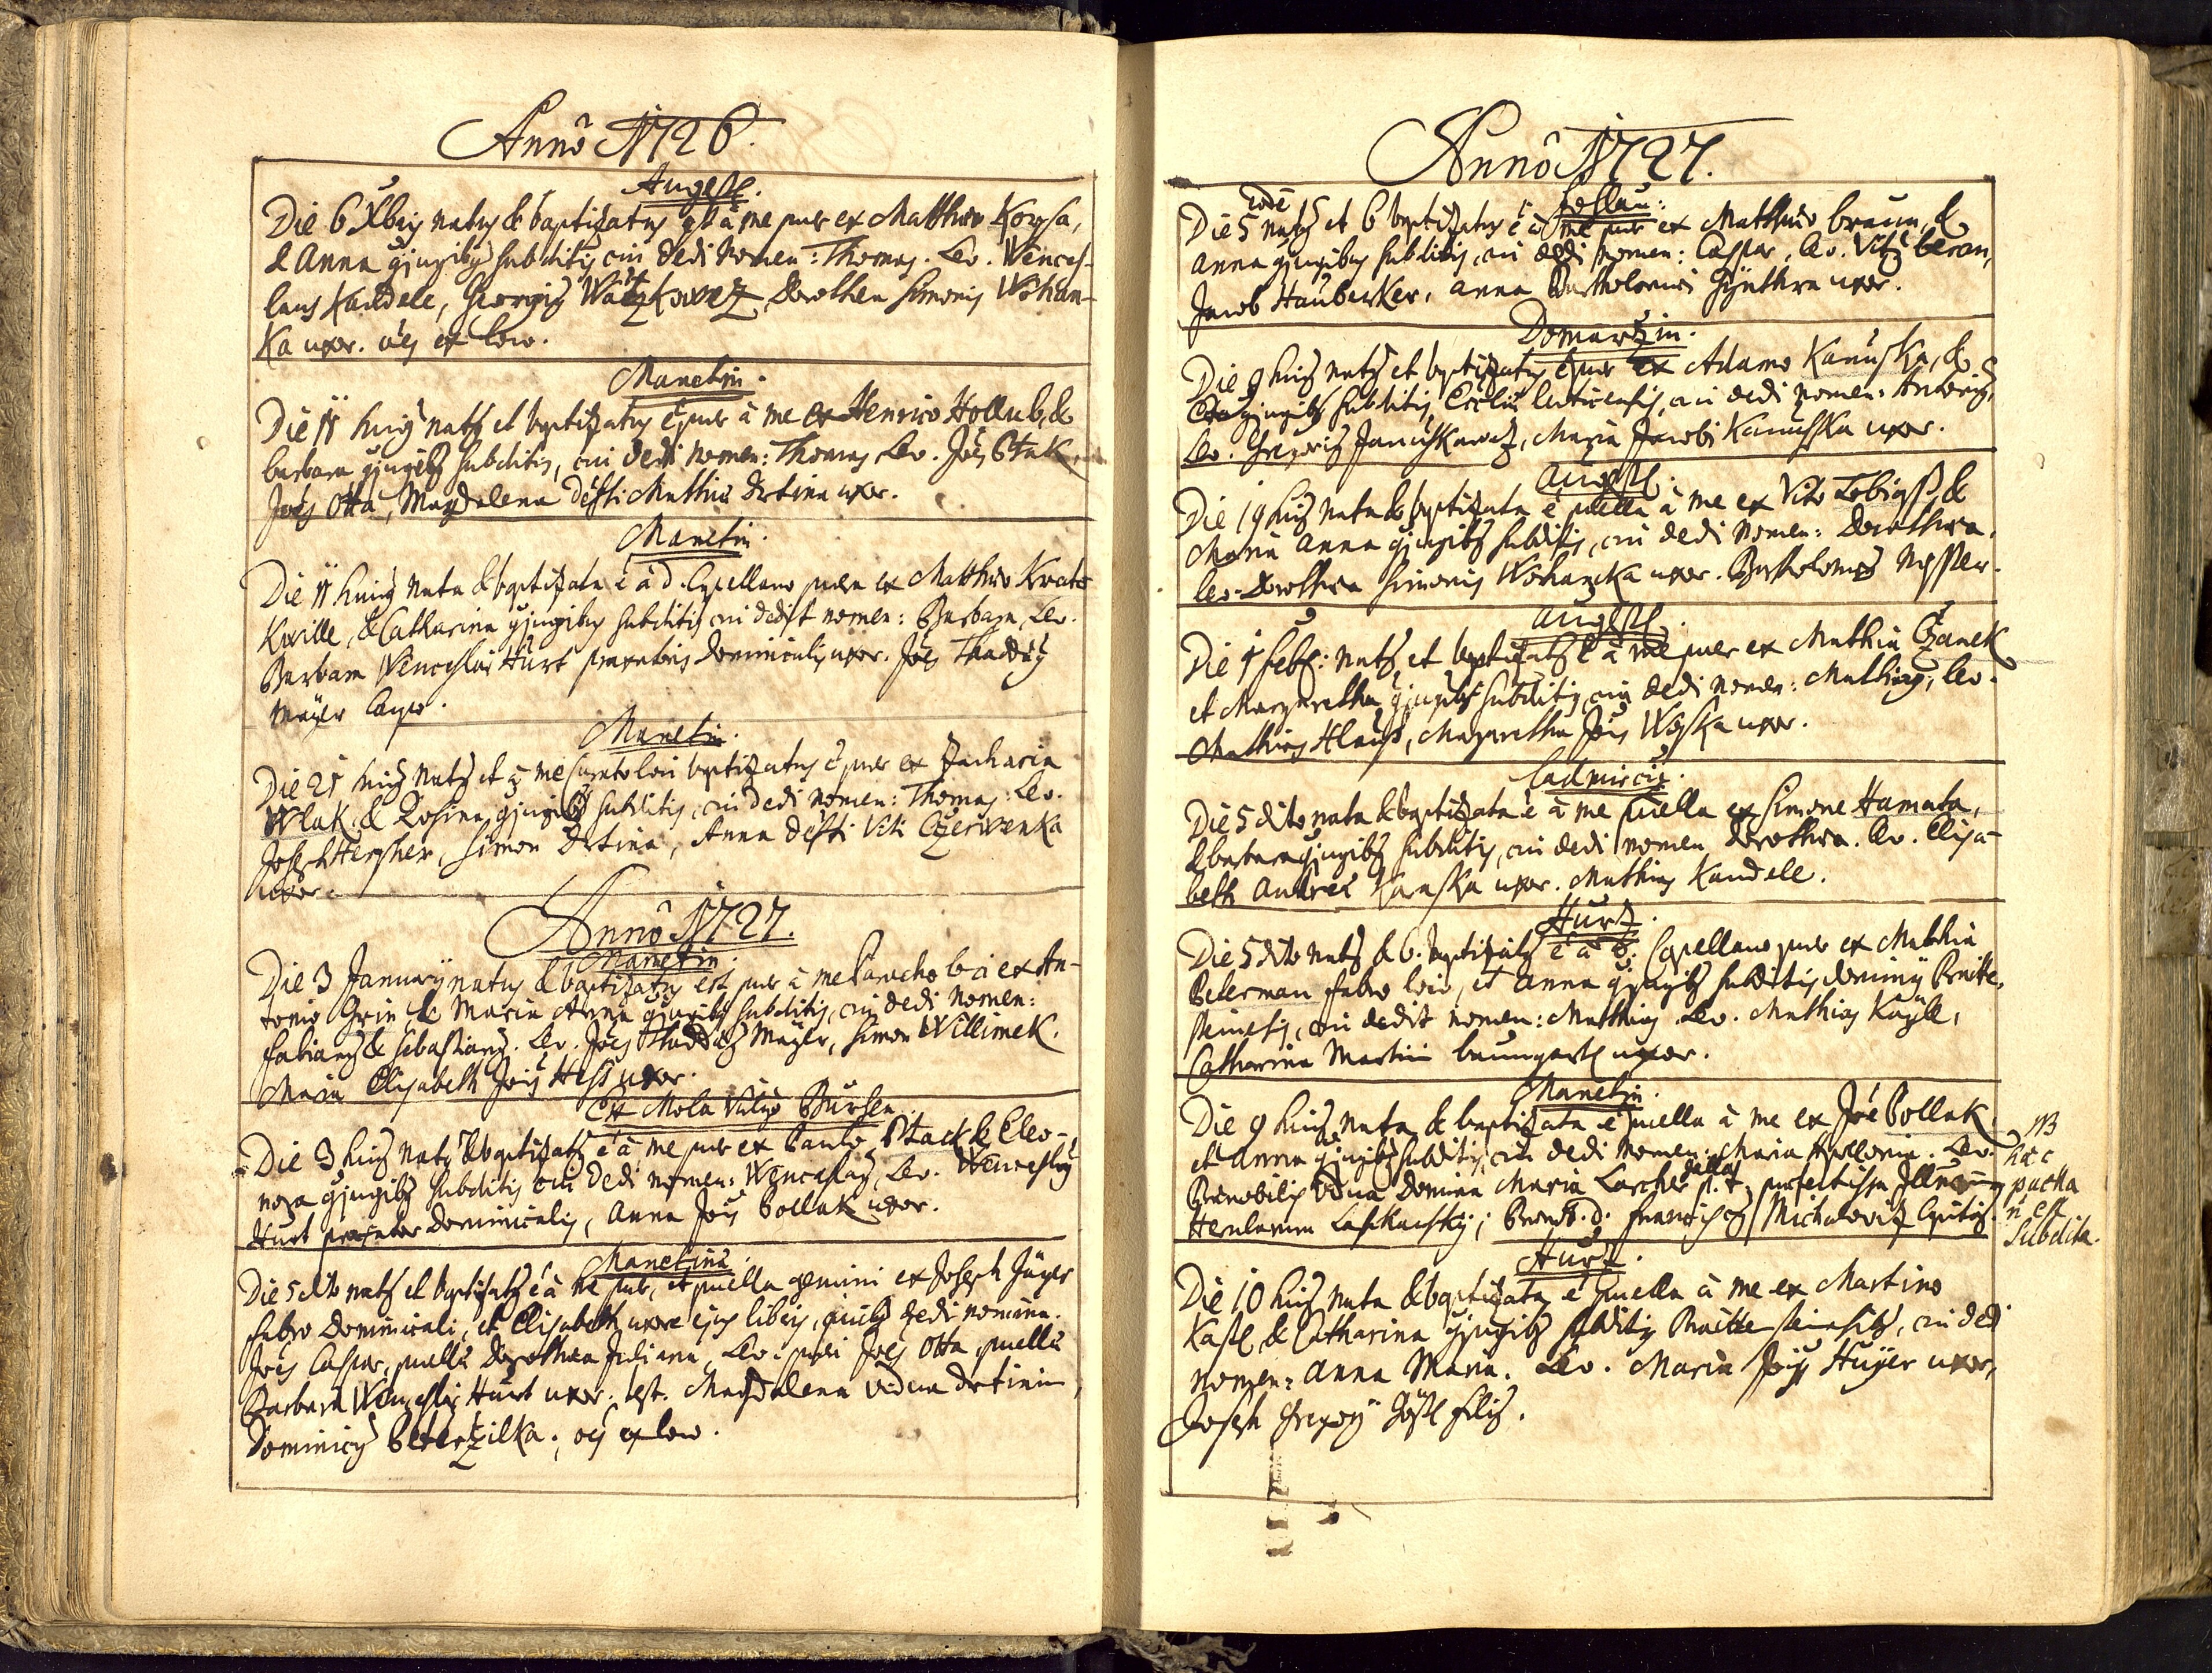 Anno 1726.
Augezl.
Die 6 Xbris natus & baptizatus est à me puer ex Matthaeo
& Anna conjugibus subditis cui dedi nomen: Thomas. Lev. Wences-
laus Kandele, Georgius Dorothea Simonis Wohan-
ka uxor. oes ex loco.
Manetin.
Die 11 hujus natus et baptizatus è puer à me ex Henrico Hollub, &
barbara conjugibus subditis, cui dedi nomen: Thomas, Lev. Joes Ptak,
Joes Otta, Magdalena defti Mathiae Drtina uxor.
Manetin.
Die 11 hujus nata & baptizata è à d. Capellano puera ex Matthaeo
Kwille, & Catharina conjugibus subditis cui dedit nomen: Barbara, Lev.
Barbara Wenceslai Hurt dominicalis uxor. Joes Thaddaeus
Mayer
Manetin.
Die 21 hujus natus et à me baptizatus è puer ex Zacharia
Wlak & Rosina conjugibus subditis, cui dedi nomen: Thomas: Lev.
Joseph Hergher, Simon Drtina, Anna defti Viti Czerwenka
uxor.
Anno 1727.
Manetin.
Die 3 January natus & baptizatus est puer à me Parocho ex An-
tonio Grin & Maria Anna conjugibus subditis, cui dedi nomen:
Fabianus & Sebastianus. Lev. Joes Thaddaeus Mayer, Simon Willimek.
Maria Elisabeth Jois Hess uxor.
Ex Mola Vulgo Bursen
Die 3 hujus natus & baptizatus è à me puer ex Paulo Ptack & Eleo-
nora conjugibus subditis cui dedi nomen: Wenceslaus, Lev. Wenceslaus
Hurt dominicalis, Anna Jois Pollak uxor.
Manetini
Die 5 dito natus et baptizatus è à me puer, et puella gemini ex Joseph Jäger
fabro dominicali, et Elisabeth uxore ejus liberis, quibus dedi nomina.
Joes Caspar, puella Dorothea Juliana. Lev. pueri Joes Otta, puellae
Barbara Wenceslai Hurt uxor. test. Magdalena vidua Drtinin,
Dominicus Peterzilka; oes ex loco.
Anno 1727.
eode
Die 5 natus et 6 baptizatus è à me puer ex Matthaeo braun, &
Anna conjugibus subditis, cui dedi nomen: Caspar, Lev. Vitus beran,
Jacob Hauberker, Anna Bartholomaei uxor.
Domartzin.
Die 9 hujus natus et baptizatus è puer ex Adamo Kanuska, &
conjugibus subditis, cui dedi nomen: Antonius,
Lev. Gregorius Januschkowetz, Maria Jacobi Kanuschka uxor.
Augezl.
Die 19 hujus nata & baptizata è puella à me ex Vito Tobiass, &
Maria Anna conjugibus subditis, cui dedi nomen: Dorothea,
lev. Dorothea Simonis Wohanka uxor. Bartholomaeus
Augezl.
Die 1 feb: natus et baptizatus è à me puer ex Mathia Czanek
et Margaretha conjugibus subditis, cui dedi nomen: Mathias, lev.
Mathias Hlaus, Margaretha Jois Woska uxor.
Ladmiricii.
Die 5 dito nata & baptizata è à me puella ex Simone Hamata,
& barbara conjugibus subditis, cui dedi nomen Dorothea. Lev. Elisa-
beth Andreae uxor. Mathias Kandele.
Hurtz.
Die 5 dito natus & 6. baptizatus è à d. Capellano puer ex Mathia
Peterman fabro loci, et Anna conjugibus subditis dominii Breitten-
steinensis, cui dedit nomen: Mathias. Lev. Mathias Käyle,
Catharina Martini baumgartl uxor.
Manetin.
Die 9 hujus nata & baptizata è puella à me ex Joe Pollak,
et Anna conjugibus subditis, cui dedi nomen: Maria Apollonia. Lev.
vidua Domina Maria Larcher
Laschansky; d. Franciscus Michalovitz
NB
haec
puella
n est
subdita.
Hurtz.
Die 10 hujus nata & baptizata è puella à me ex Martino
Kastl & Catharina conjugibus subditis Breittensteinensibus, cui dedi
nomen: Anna Maria. Lev. Maria Jois Huyer uxor,
Joseph Gregorii filius.